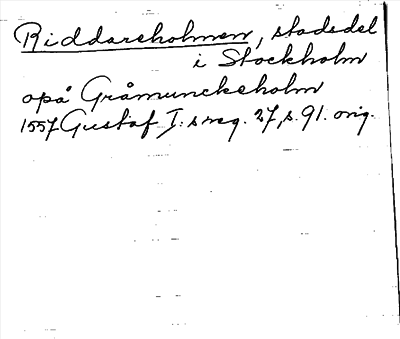 Riddareholmen, stadsdel
i Stockholm
opå Gråmunckeholm
1557 Gustaf I:s reg. 27, s. 91. orig.